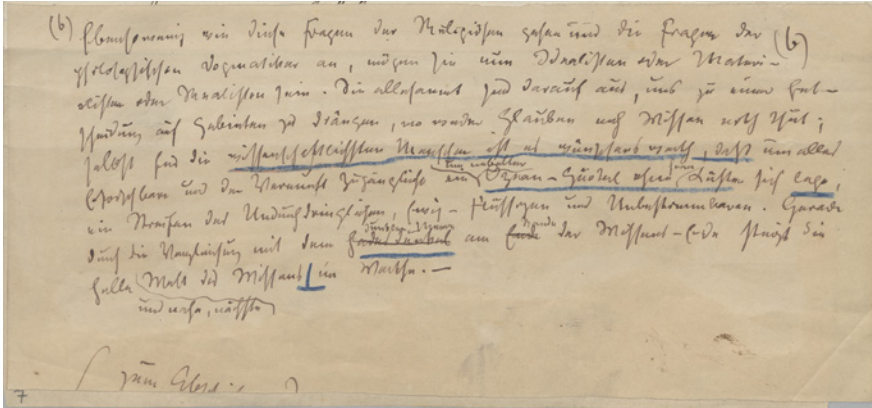 (b) Ebensowenig wie diese Fragen der Religiösen gehen uns die Fragen der (b)
philosophischen Dogmatiker an, mögen sie nun Idealisten oder Materia-
listen oder Realisten sein. Sie allesamt sind darauf aus, uns zu einer Ent-
scheidung auf Gebieten zu drängen, wo weder Glauben noch Wissen noth thut;
selbst für die wissenschaftlichsten Menschen ist es wünschenswerth, daß um alles
umnebelter
Erforschbare und der Vernunft Zugängliche ein Ozean-Gürtel ohne Küsten sich lege,
ein Streifen des Undurchdringlichen, Ewig-Flüssigen und Unbestimmbaren. Gerade
Rande
durch die Vergleichung mit dem am Ende der Wissens-Erde steigt die
helle Welt des Wissens im Werthe. —
und nahe, nächste
zum
7